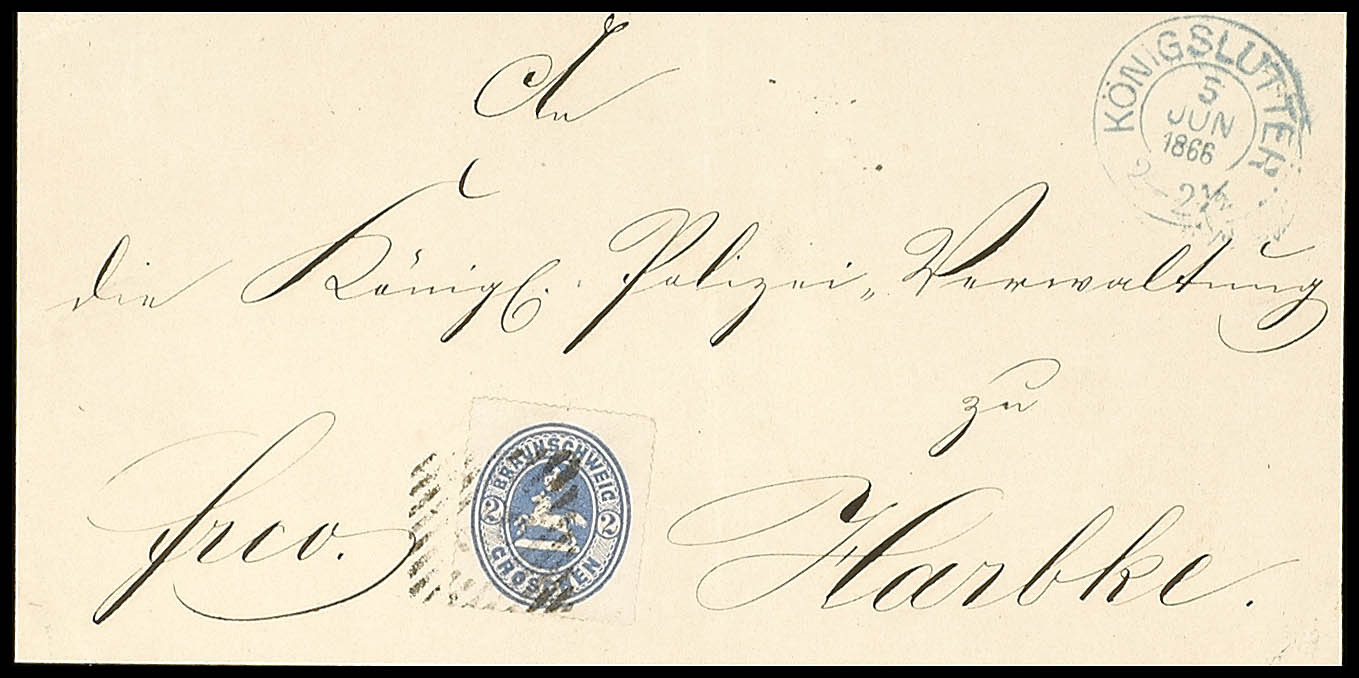 An
KÖNIGSLUTTER
5
JUN
1866
2-2½
die Königl. Polizei-Verwaltung
zu
frco.
BRAUNSCHWEIG
2 2
GROSCHEN
Harbke.